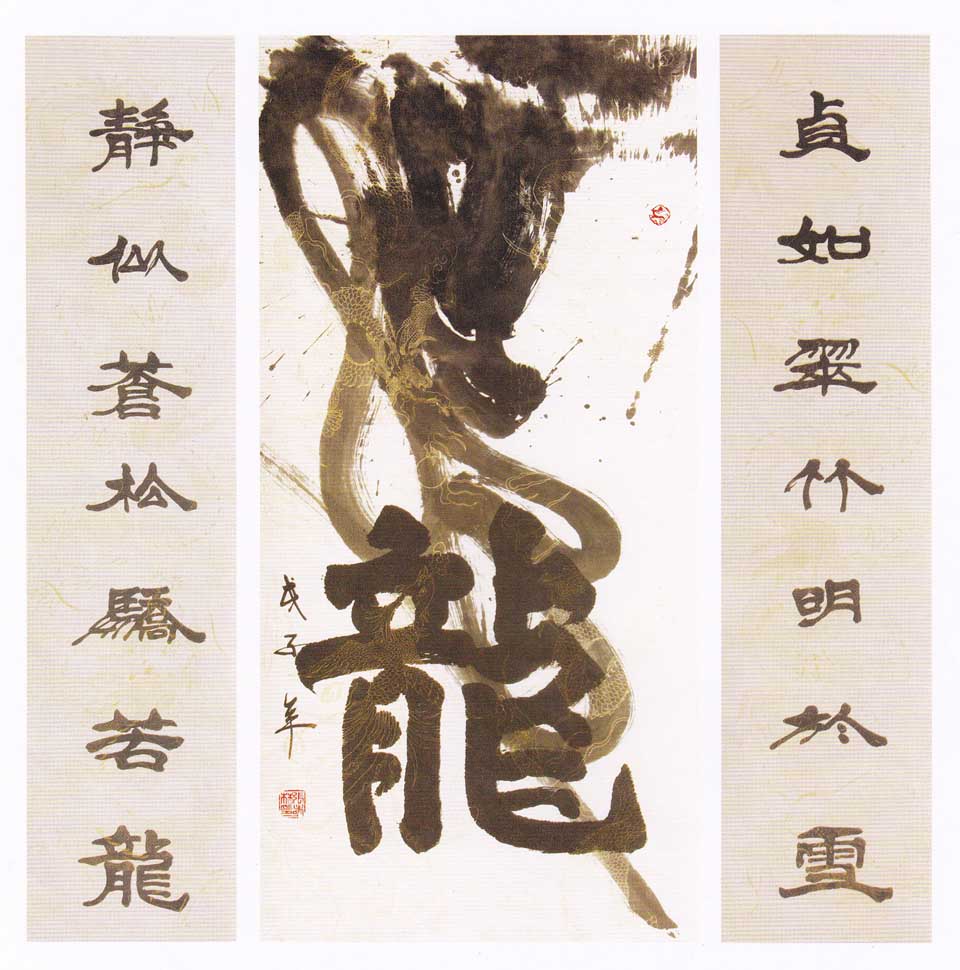 貞如翠竹明於雪
龍
戊子年
靜似蒼松驕若龍